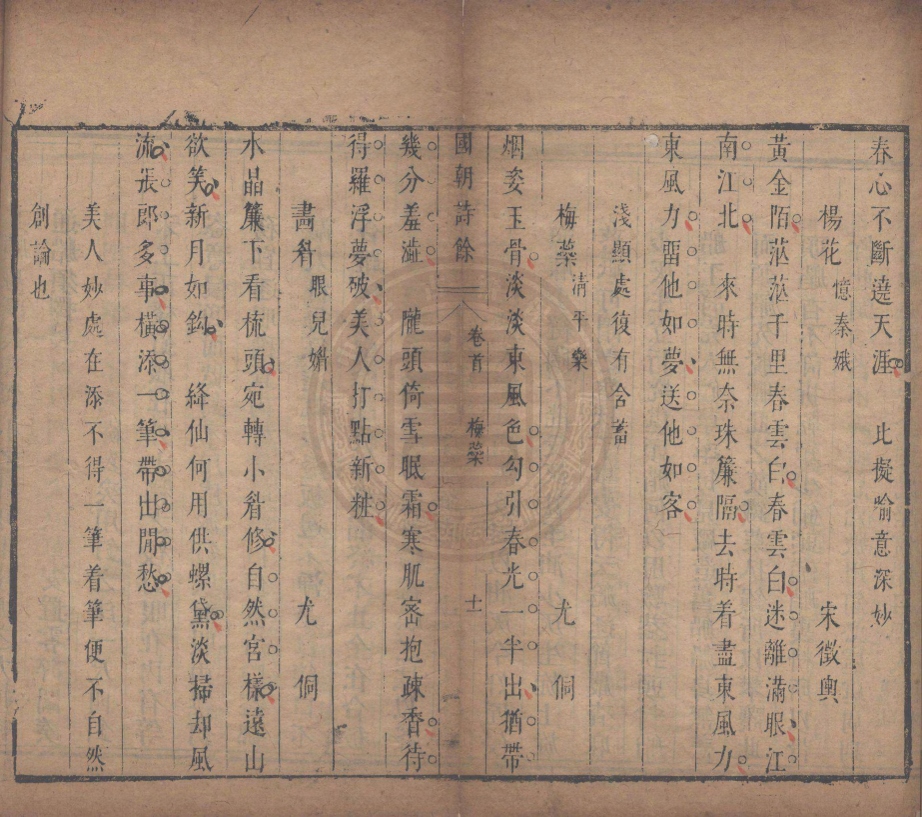 春心不斷遶天涯　此擬喻意深妙
楊花憶秦娥　宋徵輿
黃金陌茫茫千里春雲白春雲白迷離滿眼江
南江北　來時無奈珠簾隔去時着盡東風力
東風力畱他如夢送他如客
淺顯處復有含蓄
梅蘂清平樂　尤侗
烟姿玉骨淡淡東風色勾引春光一半出猶帶
國朝詩餘　卷首　梅蘂　十一
幾分羞澁　隴頭倚雪眠霜寒肌宻抱疎香待
得羅浮夢破美人打點新粧
畵眉眼兒媚　尤侗
水晶簾下看梳頭宛轉小眉修自然宮樣遠山
欲笑新月如鈎　絳仙何用供螺黛淡掃却風
流張郎多事橫添一筆帶出閒愁
美人妙處在添不得一筆着筆便不自然
創論也